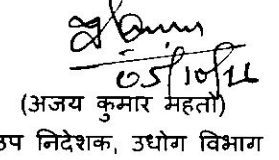 05/10/16
(अजय कुमार महतो)
उप निदेशक, उधोग विभाग